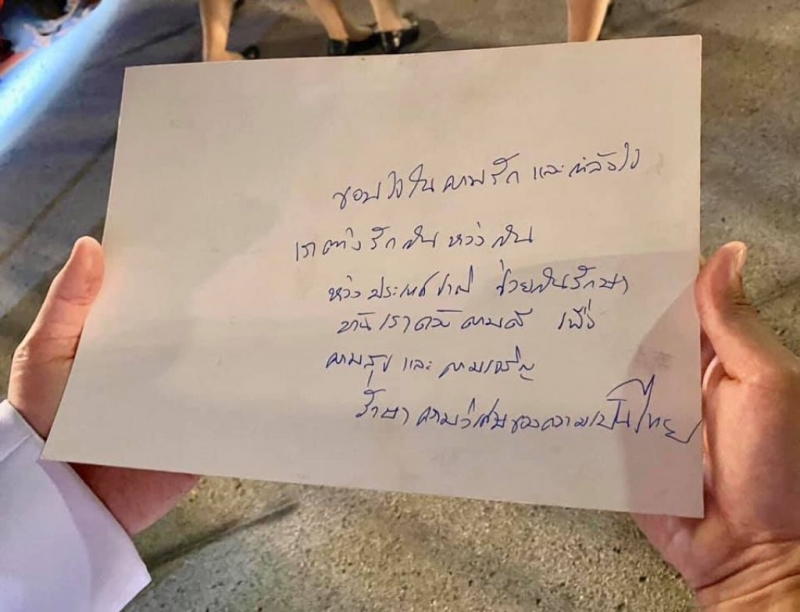 ขอบใจในความรัก และกำลังใจ
เราต่างรักกัน ห่วงกัน
ห่วงประเทศชาติ ช่วยกันรักษา
บ้านเรา ความดี เพื่อ
ความสุข และ ความเจริญ
รักษาความวิเศษของความเป็นไทย